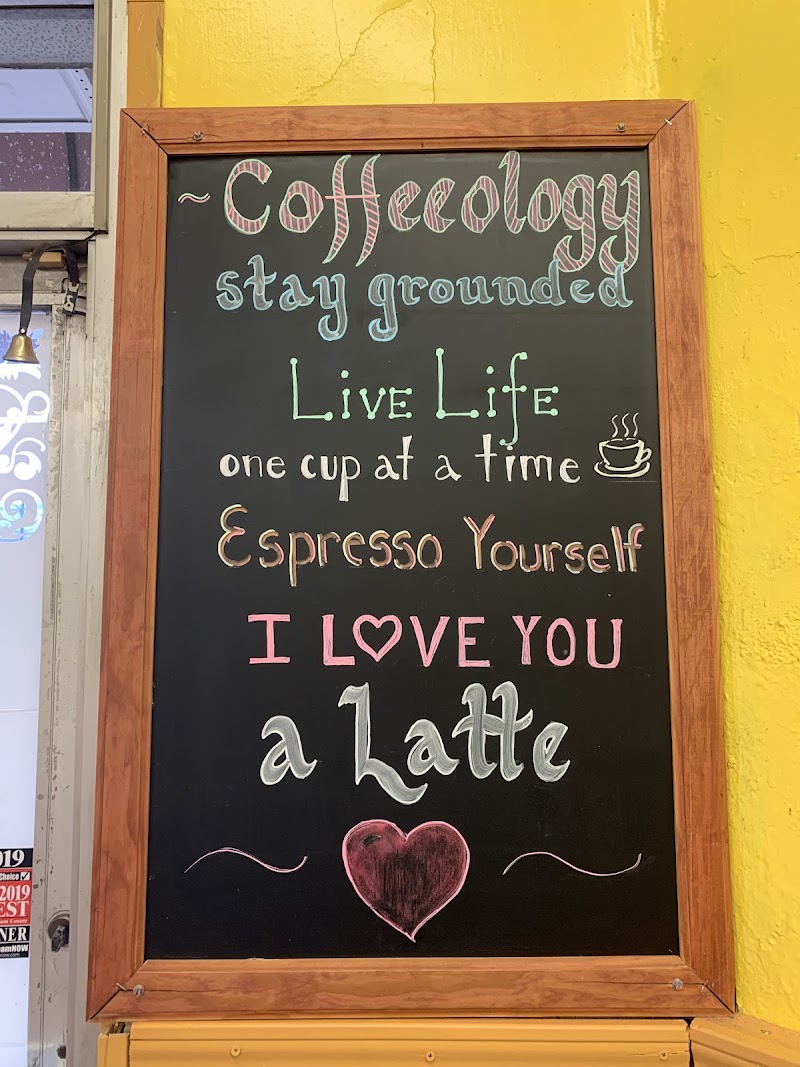 ~Coffeeology
stay grounded
Live Life
one cup at a time
Espresso Yourself
I LOVE YOU
a Latte
2019
EST
NER